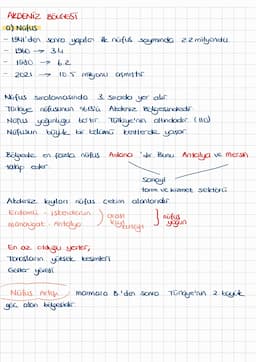 AKDENİZ BÖLGESİ
a) Nüfus
- 1941'den sonra yapılan ilk nüfus sayımında 2.2 milyondu
- 1960 → 3.4
- 1980 → 6.2
- 2021 → 10.5 milyonu aşmıştır
Nüfus sıralamasında 3. sırada yer alır
Türkiye nüfusunun Akdeniz Bölgesindedir
Nüfus yoğunluğu Türkiye'nin altındadır. (110)
Nüfusun büyük bir bölümü kentlerde yaşar.
Bölgede en fazla nüfus Adana 'dır. Bunu Antalya ve Mersin
takip eder
Sanayi
tarım ve hizmet sektörü
Akdeniz kıyıları nüfus çekim alanlarıdır
Erdemli - İskenderun
Manavgat - Antalya
arası kıyı kuşağı
nüfus yoğun
En az olduğu yerler;
Torosların yüksek kesimleri
Göller yöresi
Nüfus artışı marmara B.'den sonra Türkiye'nin 2. büyük
göç alan bölgesidir